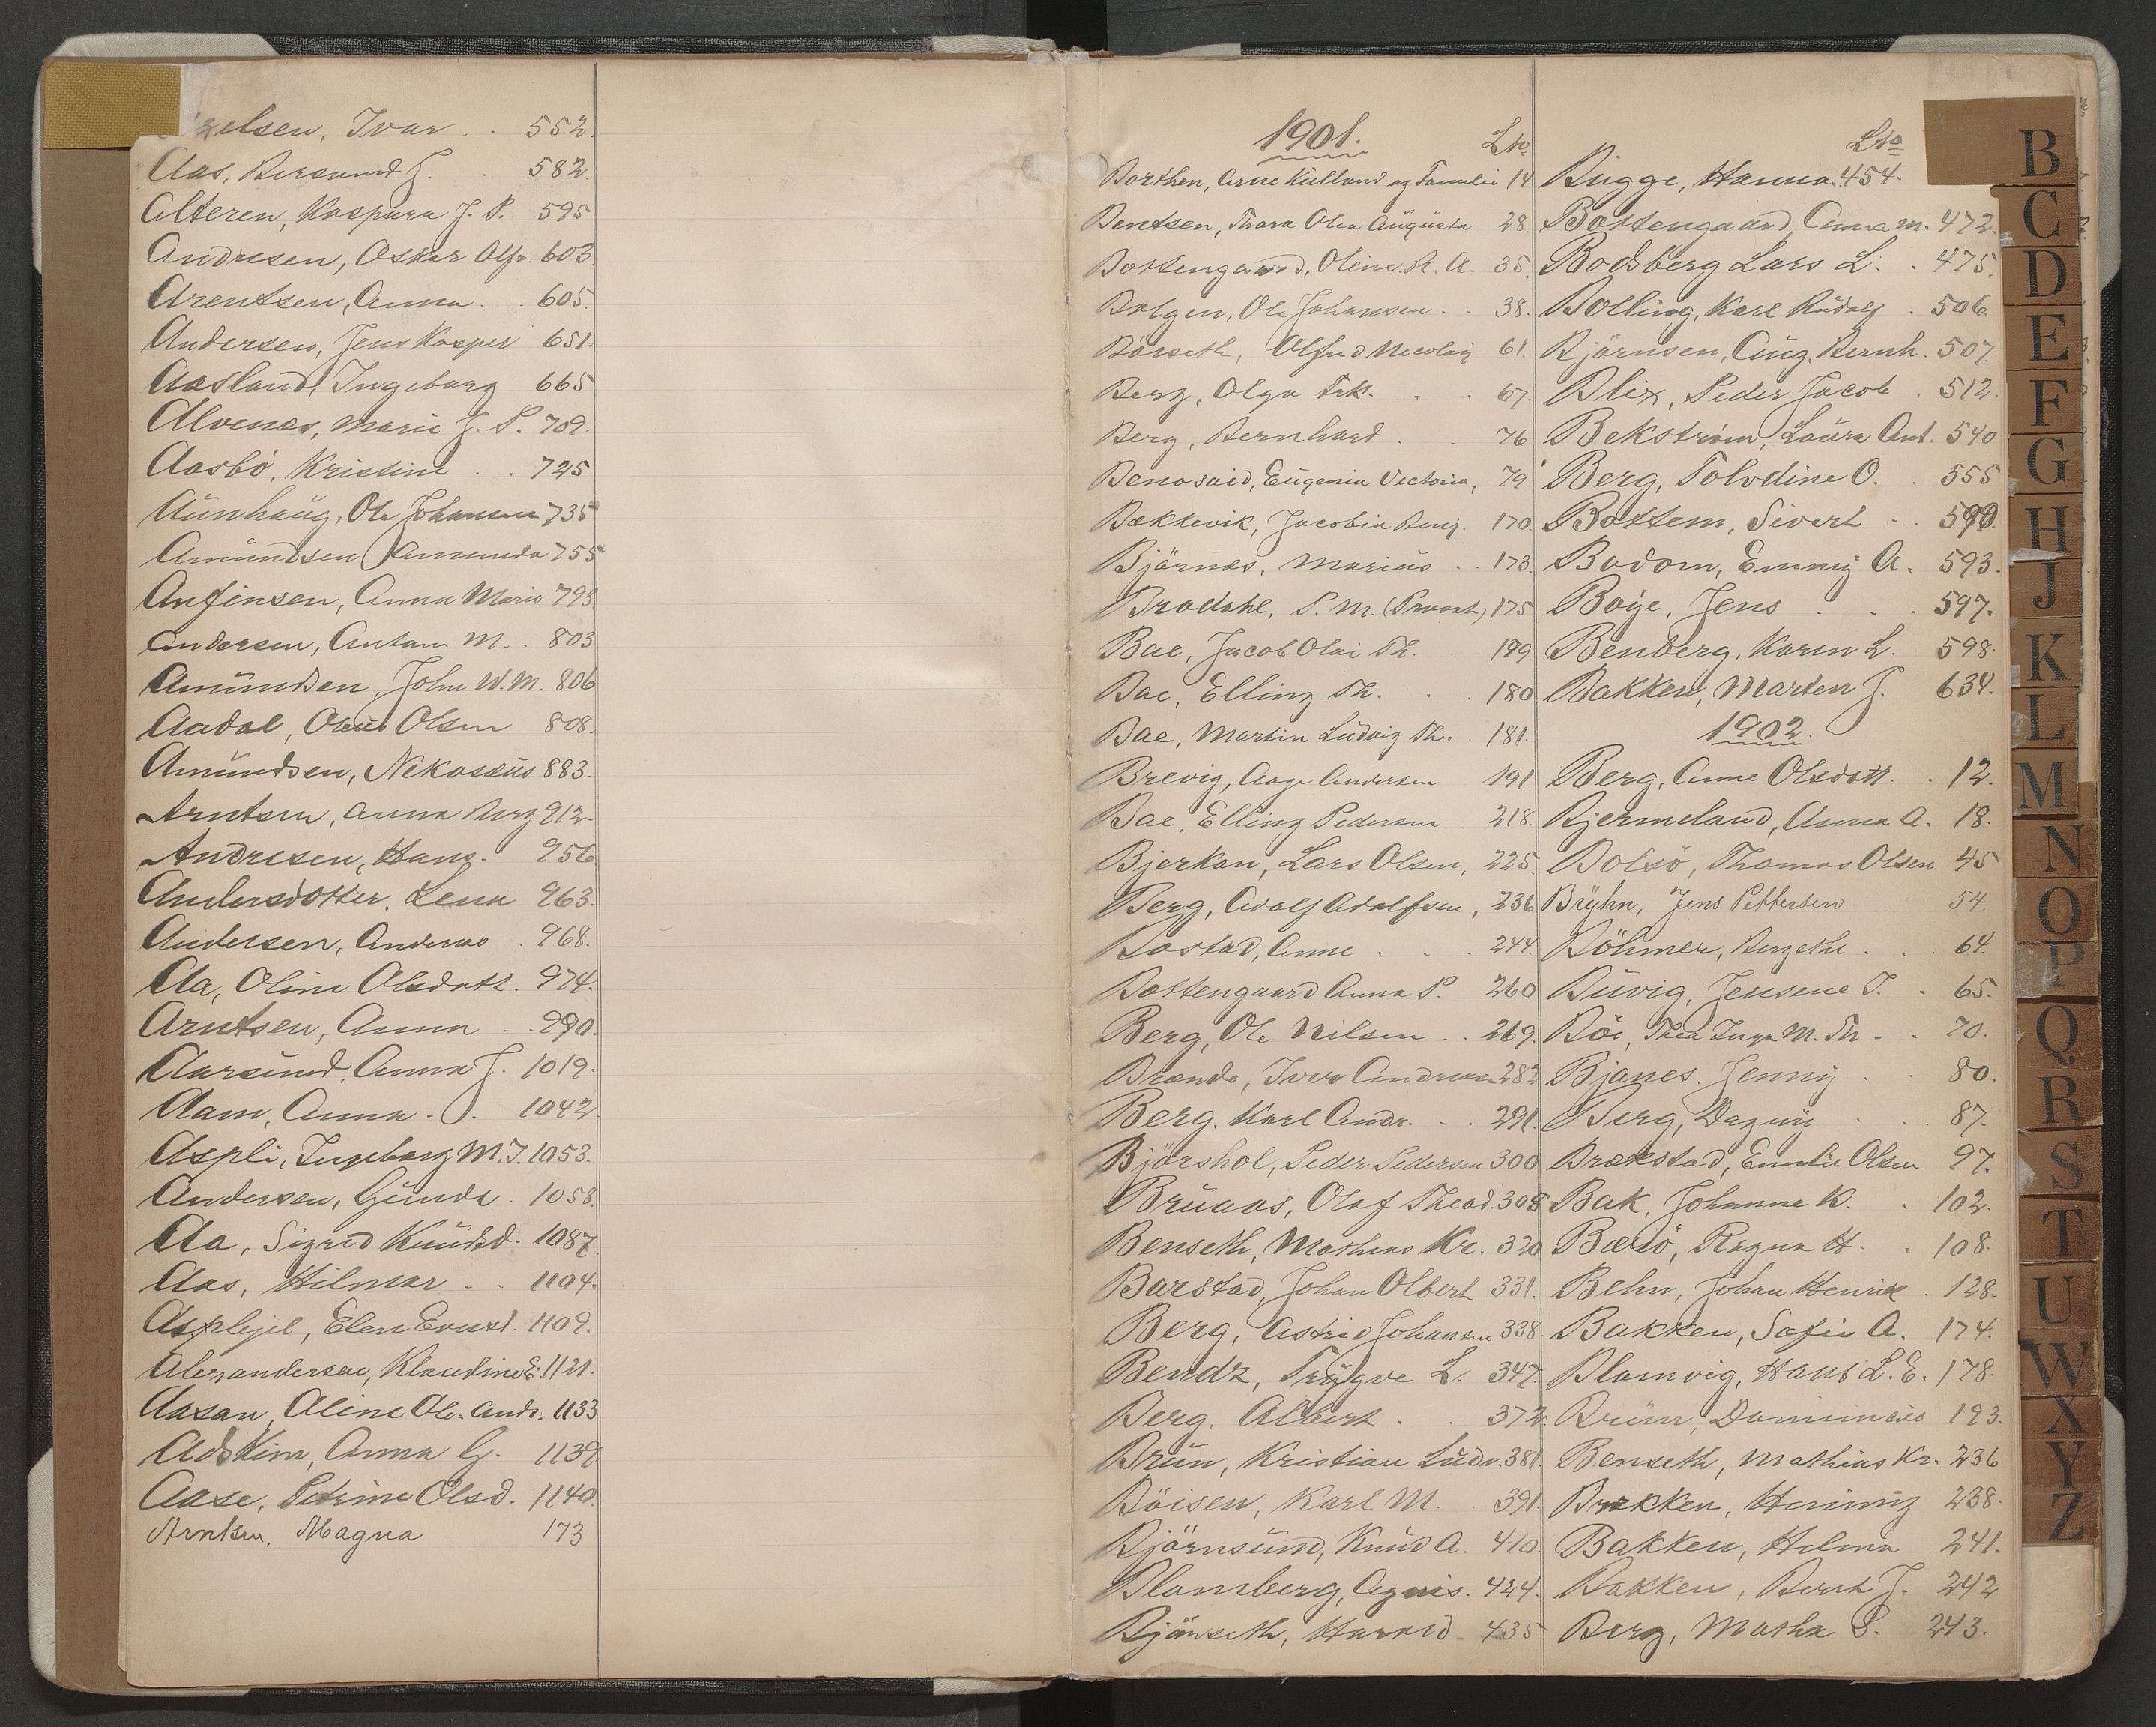 elsen, Ivar . . 552.
Aas, Bersvend J. . 582.
Alteren, Kaspara J. P. 595
Andresen, Oskar Alfr. 603.
Arentsen, Anna . . 605.
Andersen, Jens Kasper 651.
Aasland, Ingeborg 665
Alvenæs, Marie J. P. 709.
Aasbö, Kristine . . 725
Aunhaug, Ole Johansen 735
Amundsen, Amanda 755
Anfinsen, Anna Marie 793
Andersen, Anton M. . 803
Amundsen, John W. M. 806
Aadal, Olsen 808.
Amundsen, 883.
Arntsen, Anna Berg 912.
Andresen, Hans. 956
Andersdotter, Lena 963.
Andersen, Andreas . 968.
Aa, Oline Olsdatt. 974.
Arntsen, Anna . . 990.
Aarsund, Anna J. 1019.
Aam, Anna . . 1042
Aspli, Ingeborg M. J. 1053.
Andersen, Gunda . 1058
Aa, Sigrid Knudsd. 1087
Aas, Hilmar . . 1104.
Elen 1109.
Alexandersen, Klaudine E. 1121.
Aasan, Aline Ole. Andr. 1133
Anna G. 1139.
Aase, Petrine Olsd. 1140.
Arntsen, Magna 173
1901. Lno
Borthen, Arne Kielland og Familie 14
Bentsen, Thora Olea Augusta 28.
Bottengaard, Oline B. A. 35.
Bolgen, Ole Johansen . . 38.
Börseth, Alfred Nicolay 61.
Berg, Olga Frk. . . 67.
Berg, Bernhard . . 76
Eugenia Victoria, 79
Bækkevik, Jacobia Benj. 170.
Björnæs, Marius . . 173.
Brodahl, P. M. (Provst) 175
Bae, Jacob Olai Th. . 179.
Bae, Elling Th. . . 180
Bae, Martin Ludvig Th. . 181.
Brevig, Aage Andersen 191.
Bae, Elling Pedersen . 218.
Bjerkan, Lars Olsen, 225.
Berg, Adolf Adolfsen, 236
Bostad, Anne . . . 244.
Bottengaard Anna P. 260
Berg, Ole Nilsen . . 269.
Brænde, Iver Andreas 282
Berg. Karl Andr. . . 291.
Björshol, Peder Pedersen 300
Bruaas, Olaf Theod. 308
Benseth, Mathias Kr. 320
Barstad, Johan Olbert 331.
Berg, Astrid Johansen 338.
Bendz, Trygve L. 347.
Berg, Albert . . 372.
Brun, Kristian Ludv. 381.
Böisen, Karl M. . 391.
Björnsund, Knud A. 410.
Blomberg, Agnes. 424.
Björseth, Harald 435
Lno
Bugge, Hanna. 454.
Bottengaard, Anna M. 472.
Bodsberg Lars L. . 475.
Bolling, Karl Rudolf . 506.
Björnsen, Aug. Bernh. 507.
Blix, Peder Jacob . 512.
Bekström, Laura Ant. 540
Berg, Tolvdine O. . 555
Bottem, Sivert . .
Bodom, Emmy A. . 593.
Boye, Jens . . . 597.
Benberg, Karen L. 598.
Bakken, Marten J. 634.
1902.
Berg, Anne Olsdatt. . 12.
Bjermeland, Anna A. 18.
Bolsö, Thomas Olsen 45
Bryhn, Jens Pettersen 54.
Böhmer, Bergethe . . 64.
Buvig, Jensene J. . 65.
Böe, Thea Inga M. Th . . 70.
Bjanes. Jenny . . 80.
Berg, Dagny . . . 87.
Brækstad, Emilie Olsen 97.
Bak, Johanne K. . 102.
Ragna H. . 108.
Behn, Johan Henrik . 128.
Bakken, Sofie A. 174.
Blomvig, Hans L. E. 178.
Brun, 193.
Benseth, Mathias Kr. 236
Brekken, Henning 238.
Bakken, Helma 241.
Bakken, Bernt J. 242
Berg, Martha S. 243.
B
C
D
E
F
G
H
J
K
L
M
N
O
P
Q
R
S
T
U
W
X
Y
Z